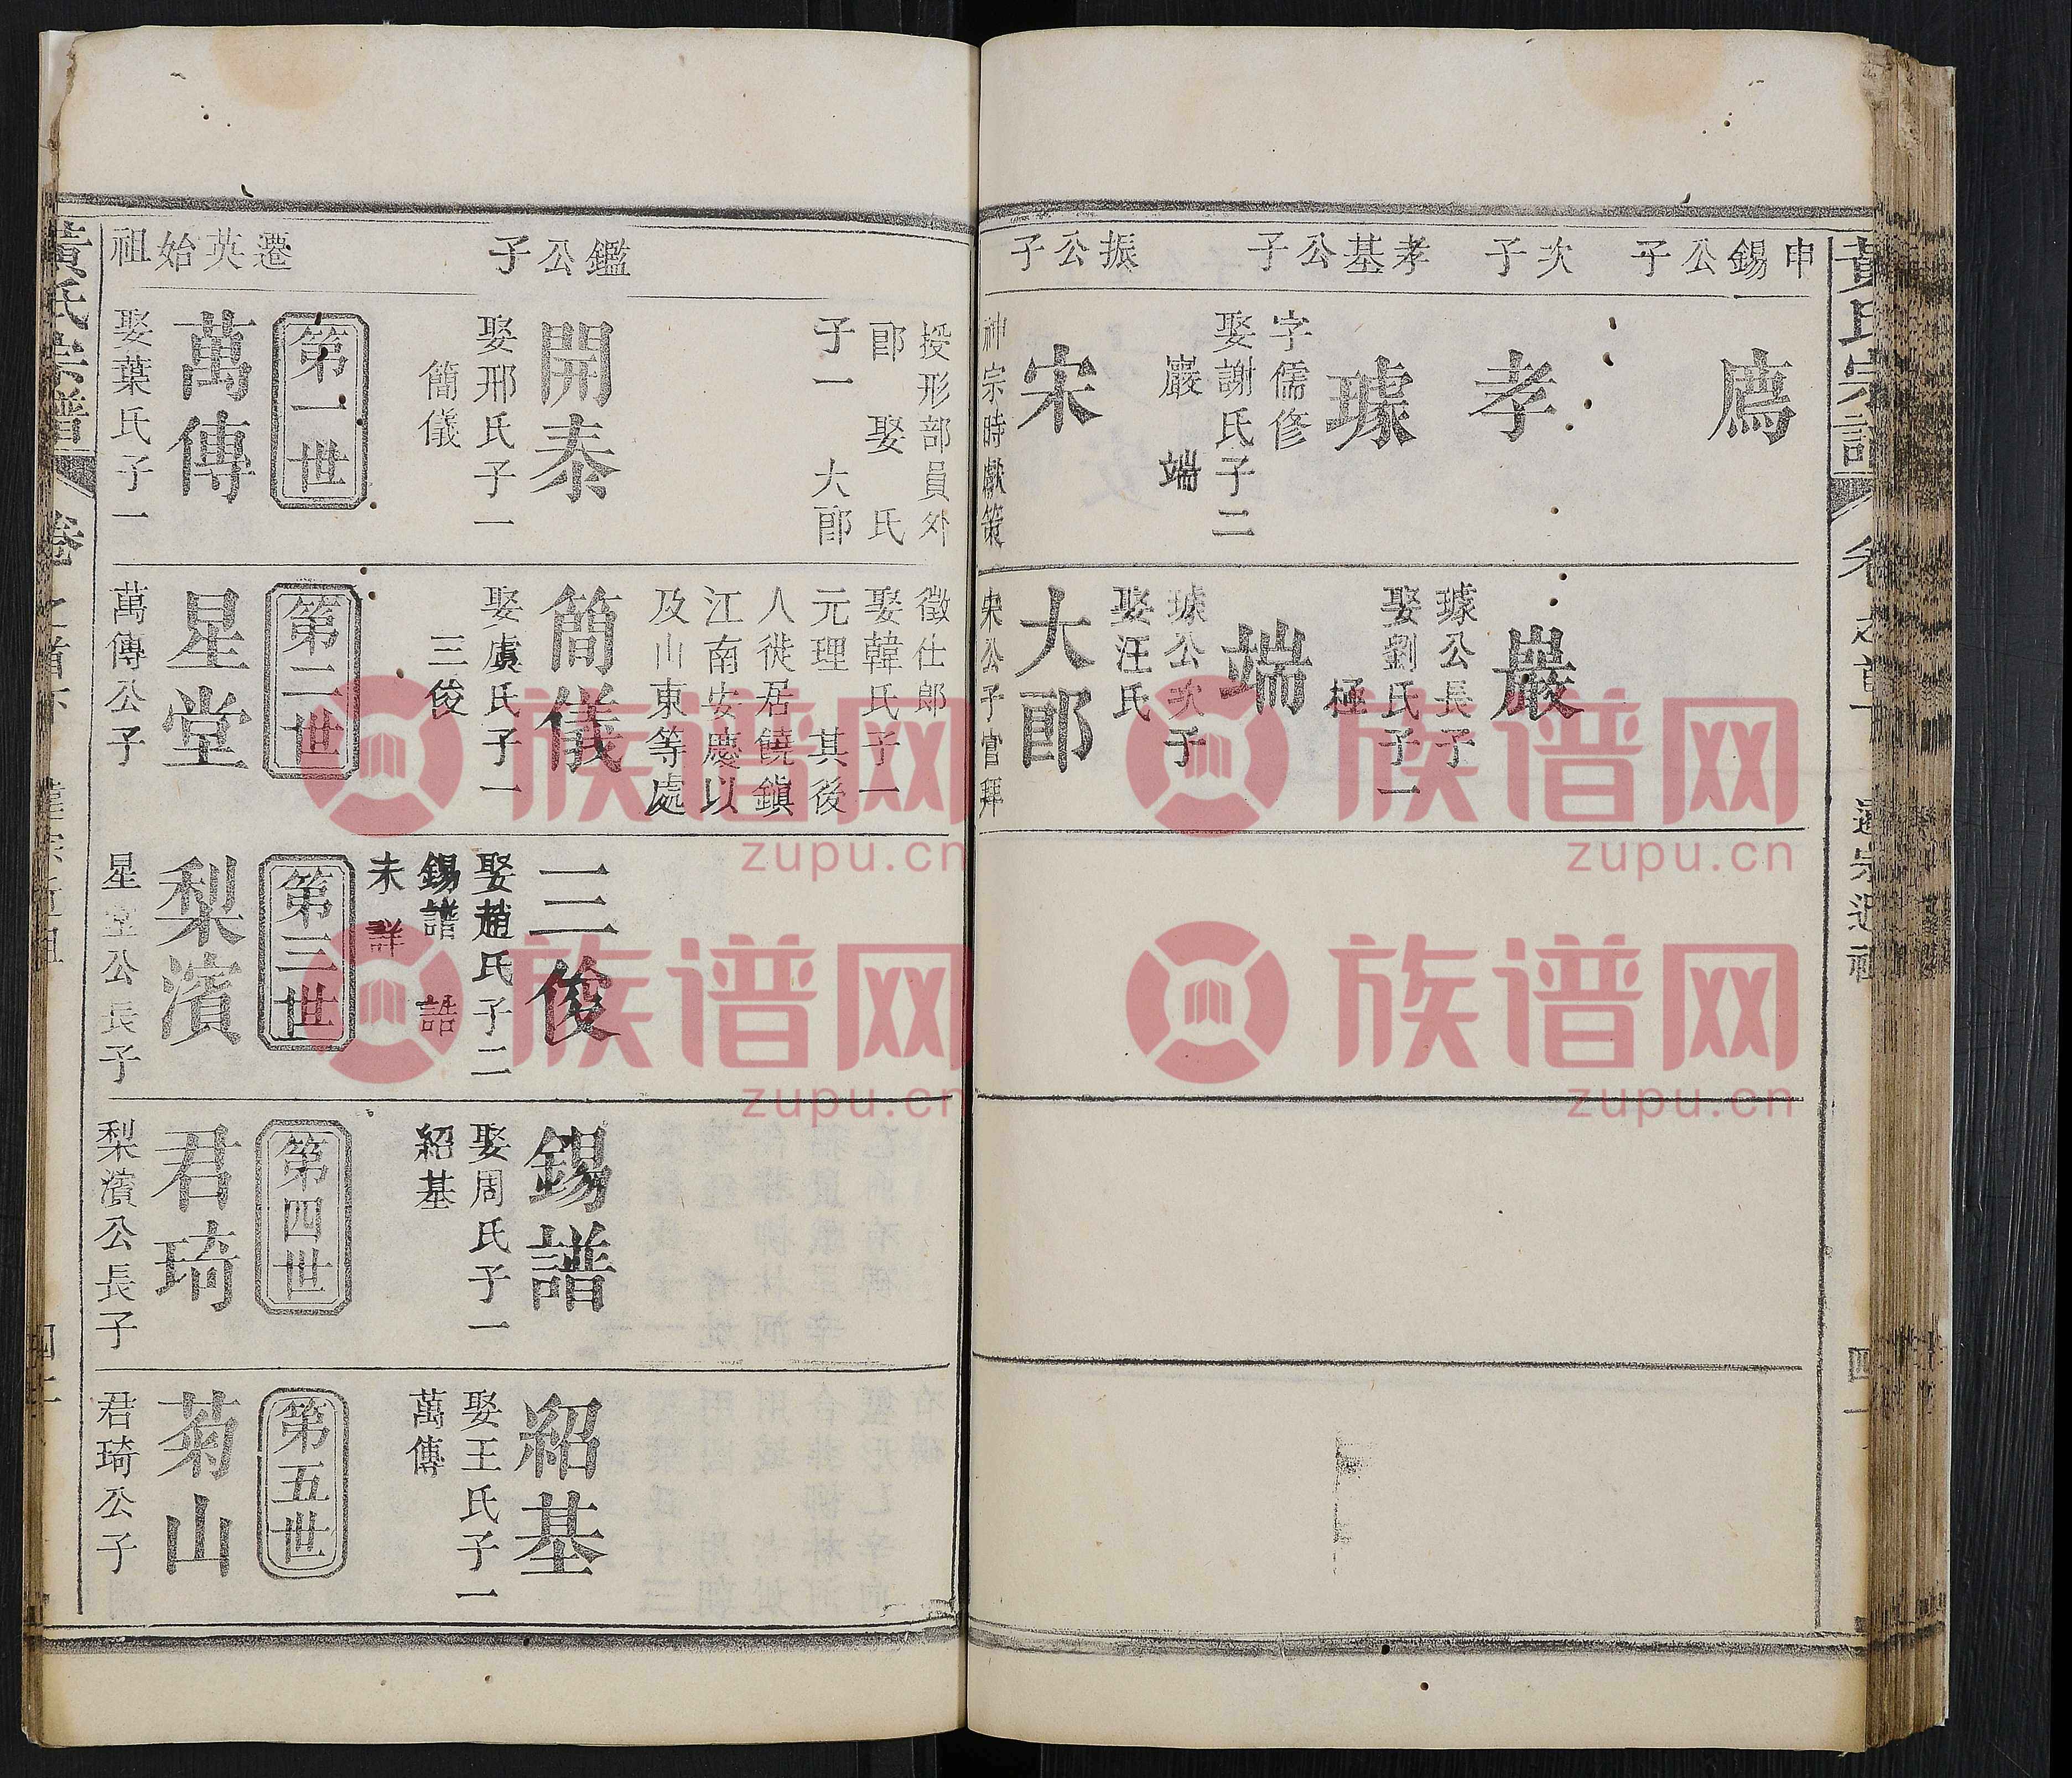 黃氏宗譜
卷之首下
四
申錫公子
廌
次子
孝
孝基公子
璩
字儒修
娶謝氏子二
巖 端
振公子
宋
神宗時獻策
巖
璩公長子
娶劉氏子一
極
端
璩公次子
娶汪氏
大郎
宋公子官拜
授形部員外
郎 娶 氏
子一 大郎
徵仕郎
娶韓氏子一
元理 其後
人徙居饒鎮
江南安慶以
及山東等處
鑑公子
開泰
娶邢氏子一
簡儀
簡儀
娶虞氏子一
三俊
三俊
娶趙氏子二
錫譜 誥
未詳
錫譜
娶周氏子一
紹基
紹基
娶王氏子一
萬傳
遷英始祖
第一世
萬傳
娶葉氏子一
第二世
星堂
萬傳公子
第三世
梨濱
星堂公長子
第四世
君琦
梨濱公長子
第五世
菊山
君琦公子
黃氏宗譜
卷之首下
族谱网
zupu.cn
族谱网
zupu.cn
族谱网
zupu.cn
族谱网
zupu.cn